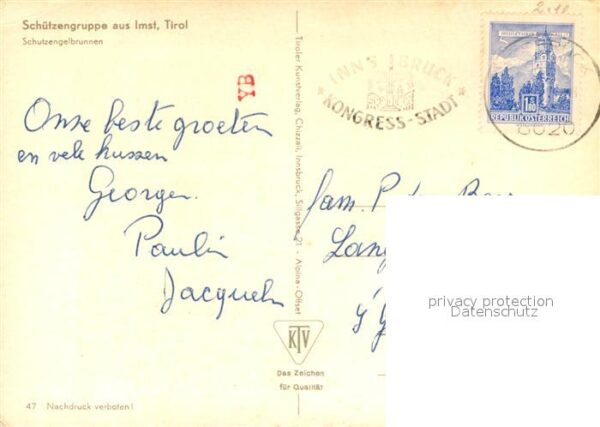 Schützengruppe aus Imst, Tirol
Schutzengelbrunnen
YB
Onze beste groeten
en vele kussen
Georges.
Paulin
Jacquelin
Tiroler Kunstverlag, Chizzali, Innsbruck, Sillgasse 21 - Alpina-Offset
KTV
Das Zeichen
für Qualität
47 Nachdruck verboten!
INNSBRUCK
KONGRESS-STADT
6020
REPUBLIK ÖSTERREICH
Fam. P. de
Lang
privacy protection
Datenschutz